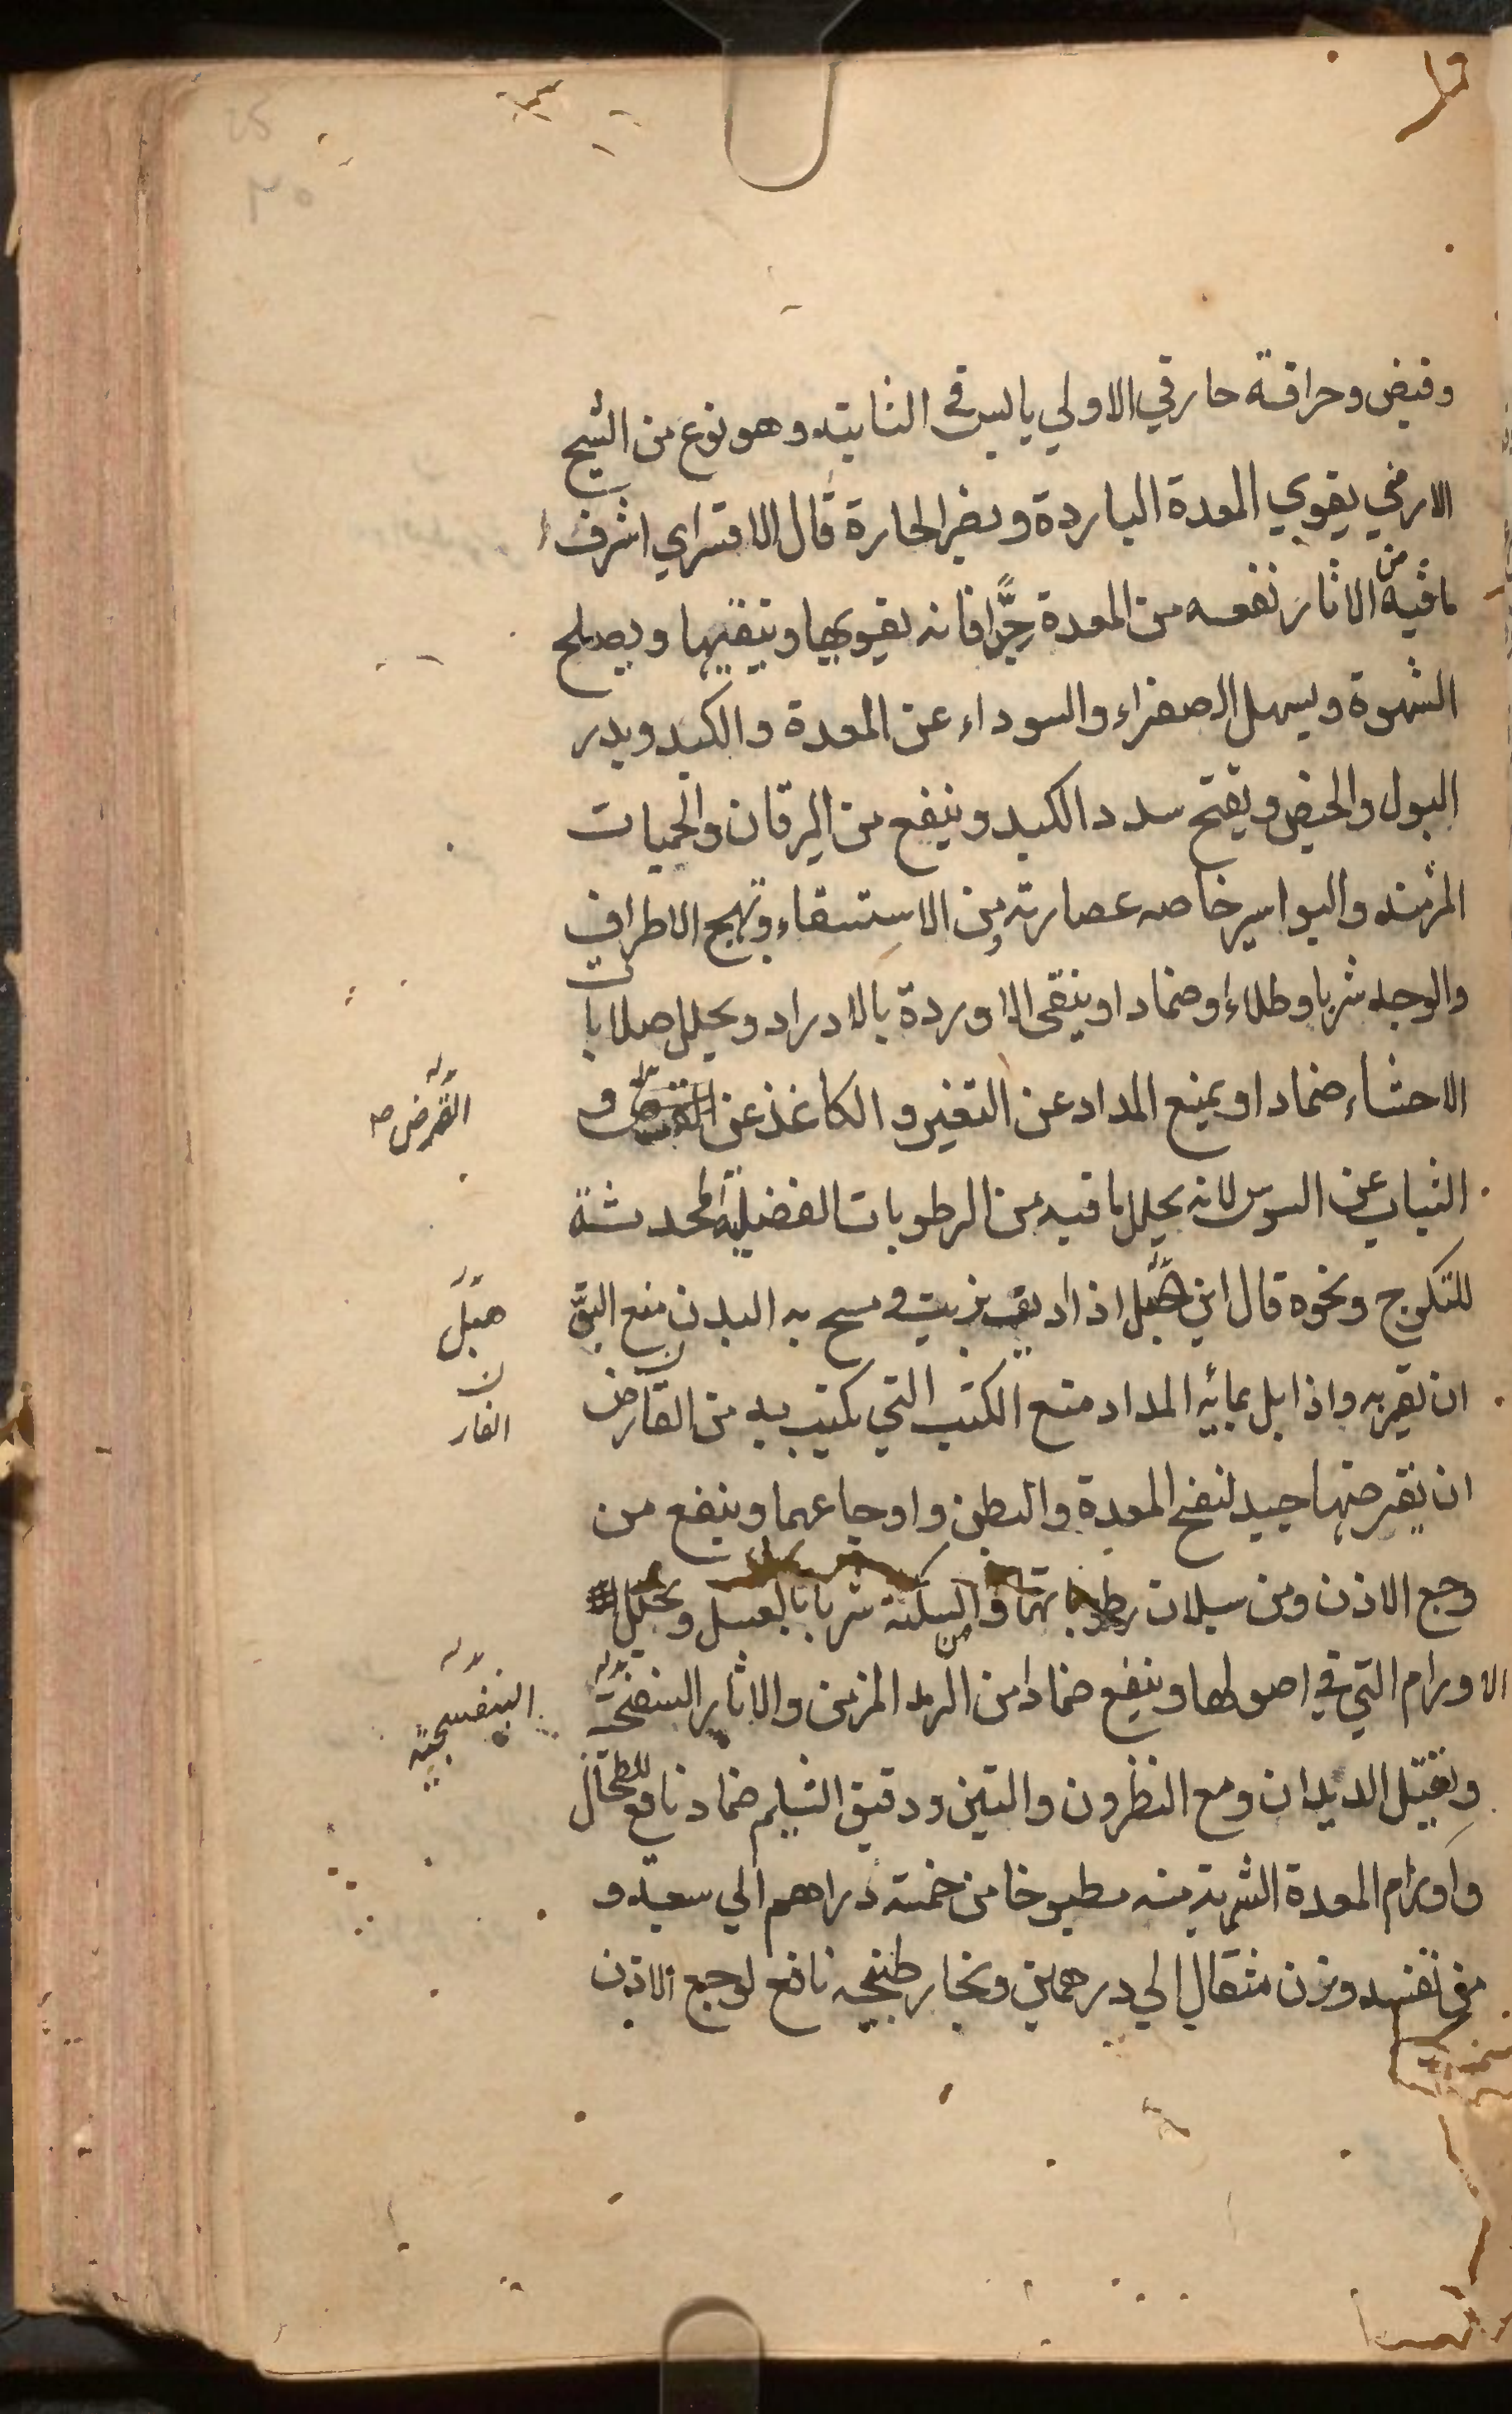 وقبض وحرافة حار في الاولي يابس في الثانية وهو نوع من الشيح
الارمني يقوي المعدة الباردة ويضر الحارة قال الاقسراي اشرف
ما فيه من الاثار نفعه من المعدة جدًّا فانه يقويها وينقيها ويصلح
الشهوة ويسهل الصفراء والسوداء عن المعدة والكبد ويدر
البول والحيض ويفتح سدد الكبد وينفع من اليرقان والحميات
المزمنه والبواسير خاصه عصارته ومن الاستسقاء وتهيج الاطراف
والوجه شربا وطلاء وضمادا وينقي الاوردة بالادرار ويحلل صلابات
الاحشاء ضمادا ويمنع المداد عن التغير والكاغذ عن و
القرض صح
الثياب عن السوس لانه يحلل ما فيه من الرطوبات الفضلية المحدثة
للتكرج ونحوه قال ابن هبل اذا ديف بزيت ومسح به البدن منع البق
هبل
ان يقربه واذا بل بمائه المداد منع الكتب التي يكتب به من القارض
ن
الفار
ان يقرضها جيد لنفخ المعدة والبطن واوجاعهما وينفع من
وجع الاذن ومن سيلان رطوباتها ومن السكتة شربا بالعسل ويحلل
الاورام التي في اصولها وينفع ضمادا من الرمد المزمن والاثار البنفسجية
البنفسجية
ويقتل الديدان ومع النطرون والتين ودقيق الشيلم ضماد نافع للطحال
واورام المعدة الشربة منه مطبوخا من خمسة دراهم الي سبعة و
في نفسه وزن مثقال الي درهمين وبخار طبيخه نافع لوجع الاذن